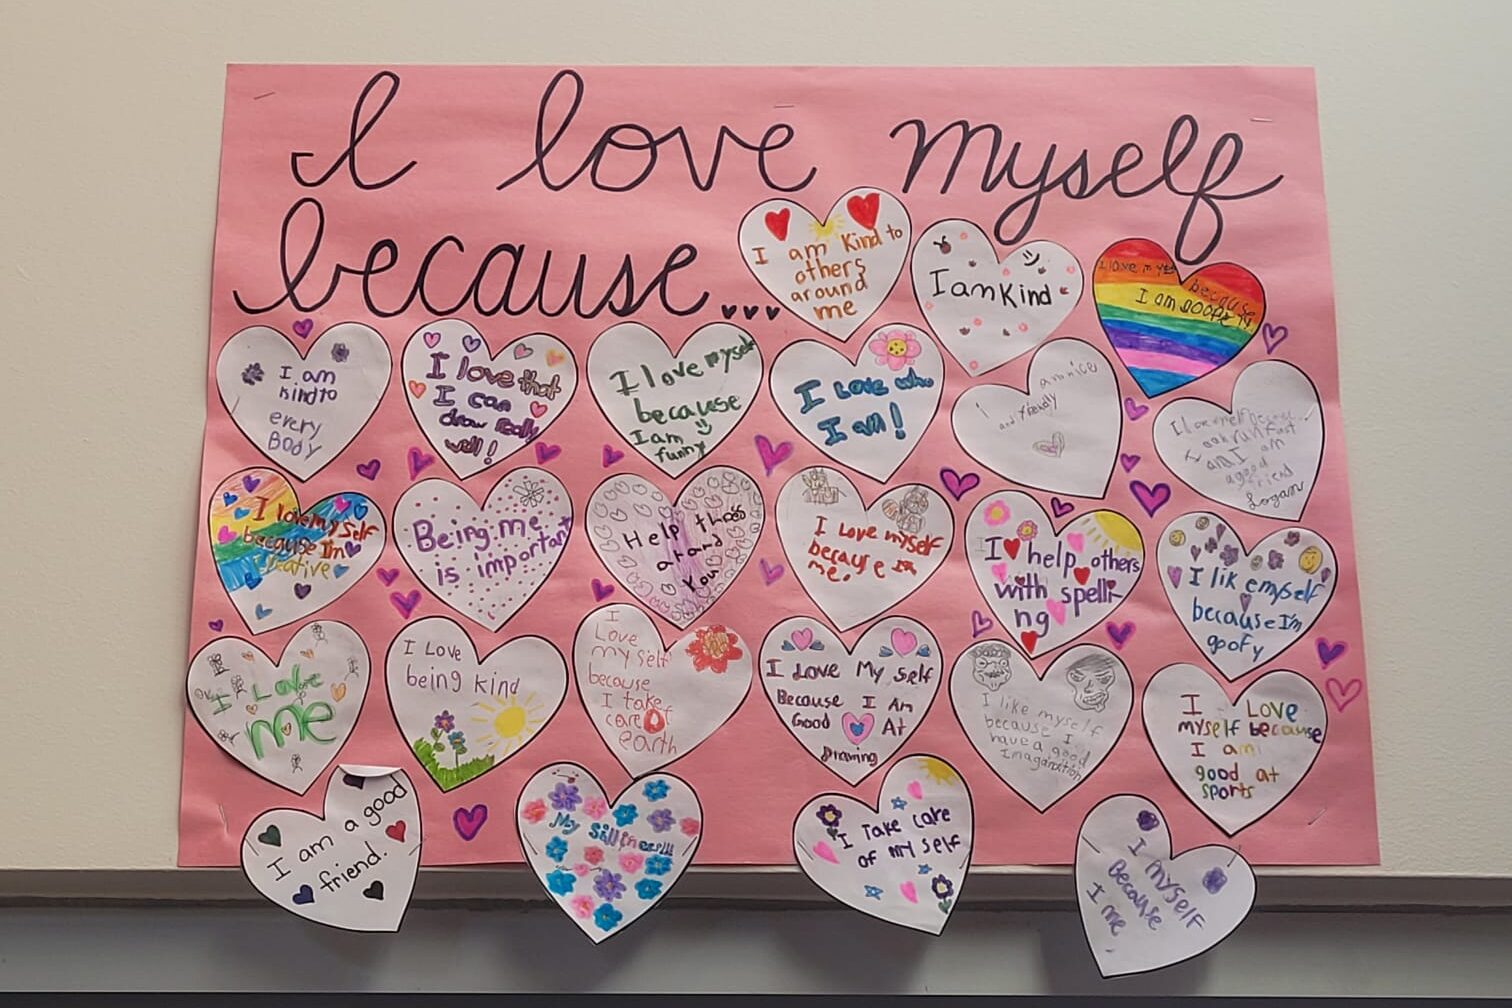 I love myself
because...
I am kind to
others
around
me
I am Kind
I love my
because
I am goofy
I am
kind to
every
BODY
I love that
I can
draw really
well!
I love myself
because
I am
funny
I Love who
I am!
I am nice
and friendly
I love myself because
run fast
and I am
a good
friend
Logan
I love my self
because I'm
creative
Being me
is important
Help thos
arond
you
I Love myself
because I'm
me.
I help others
with spelli-
ng
I like myself
because I'm
goofy
I Love
me
I Love
being kind
I
Love
my self
because
I take
care of
earth
I Love My self
Because I Am
Good At
Drawing
I like myself
because I
have a good
Imaganation
I Love
myself because
I am
good at
sports
I am a good
friend.
My Sillyness!!!
I Take care
of my self
I myself
Because
I me